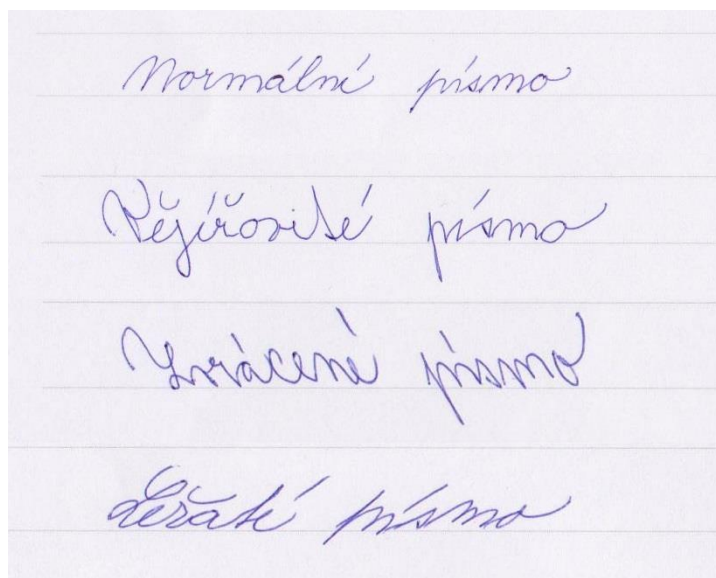 Normální písmo
Vějířovité písmo
Zvrácené písmo
Ležaté písmo